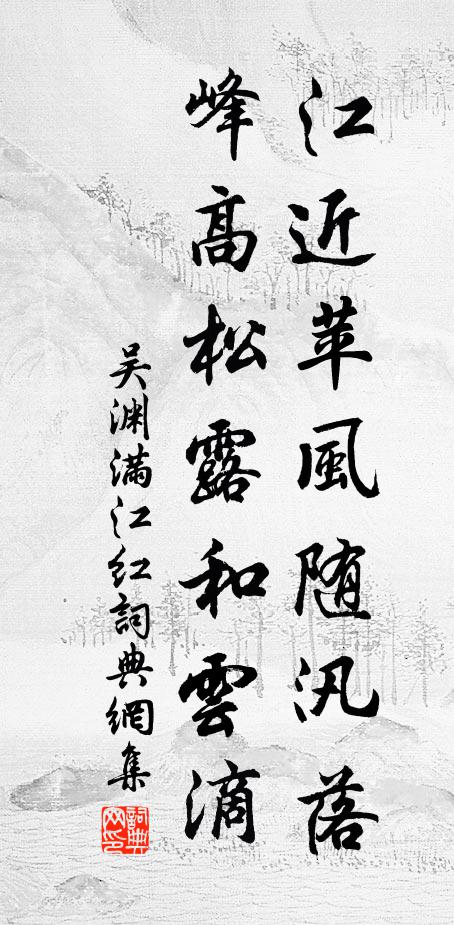 江近苹風随汎落
峰高松露和雲滴
吴渊满江红詞典網集
詞典网印